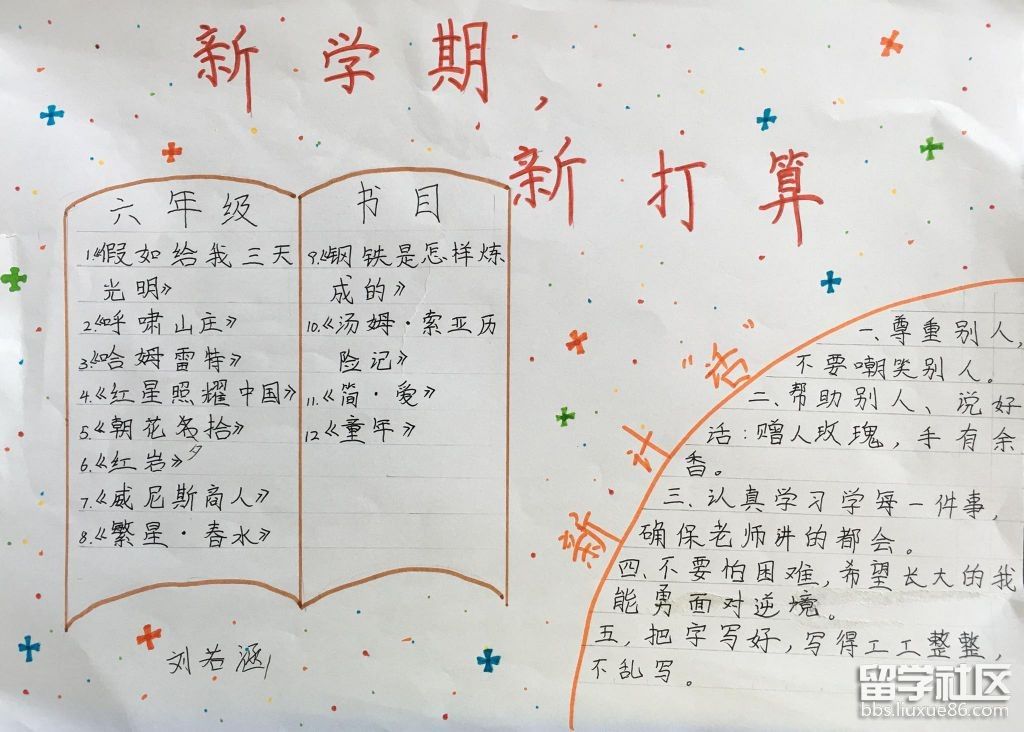 新学期，
新打算
六年级
1.《假如给我三天
光明》
2.《呼啸山庄》
3.《哈姆雷特》
4.《红星照耀中国》
5.《朝花夕拾》
6.《红岩》
7.《威尼斯商人》
8.《繁星·春水》
书目
9.《钢铁是怎样炼
成的》
10.《汤姆·索亚历
险记》
11.《简·爱》
12《童年》
刘若涵
新计“话”
一.尊重别人，
不要嘲笑别人。
二、帮助别人、说好
话：赠人玫瑰，手有余
香。
三、认真学习学每一件事，
确保老师讲的都会。
四、不要怕困难，希望长大的我
能勇面对逆境。
五，把字写好，写得工工整整，
不乱写。
留学社区
bbs.liuxue86.com